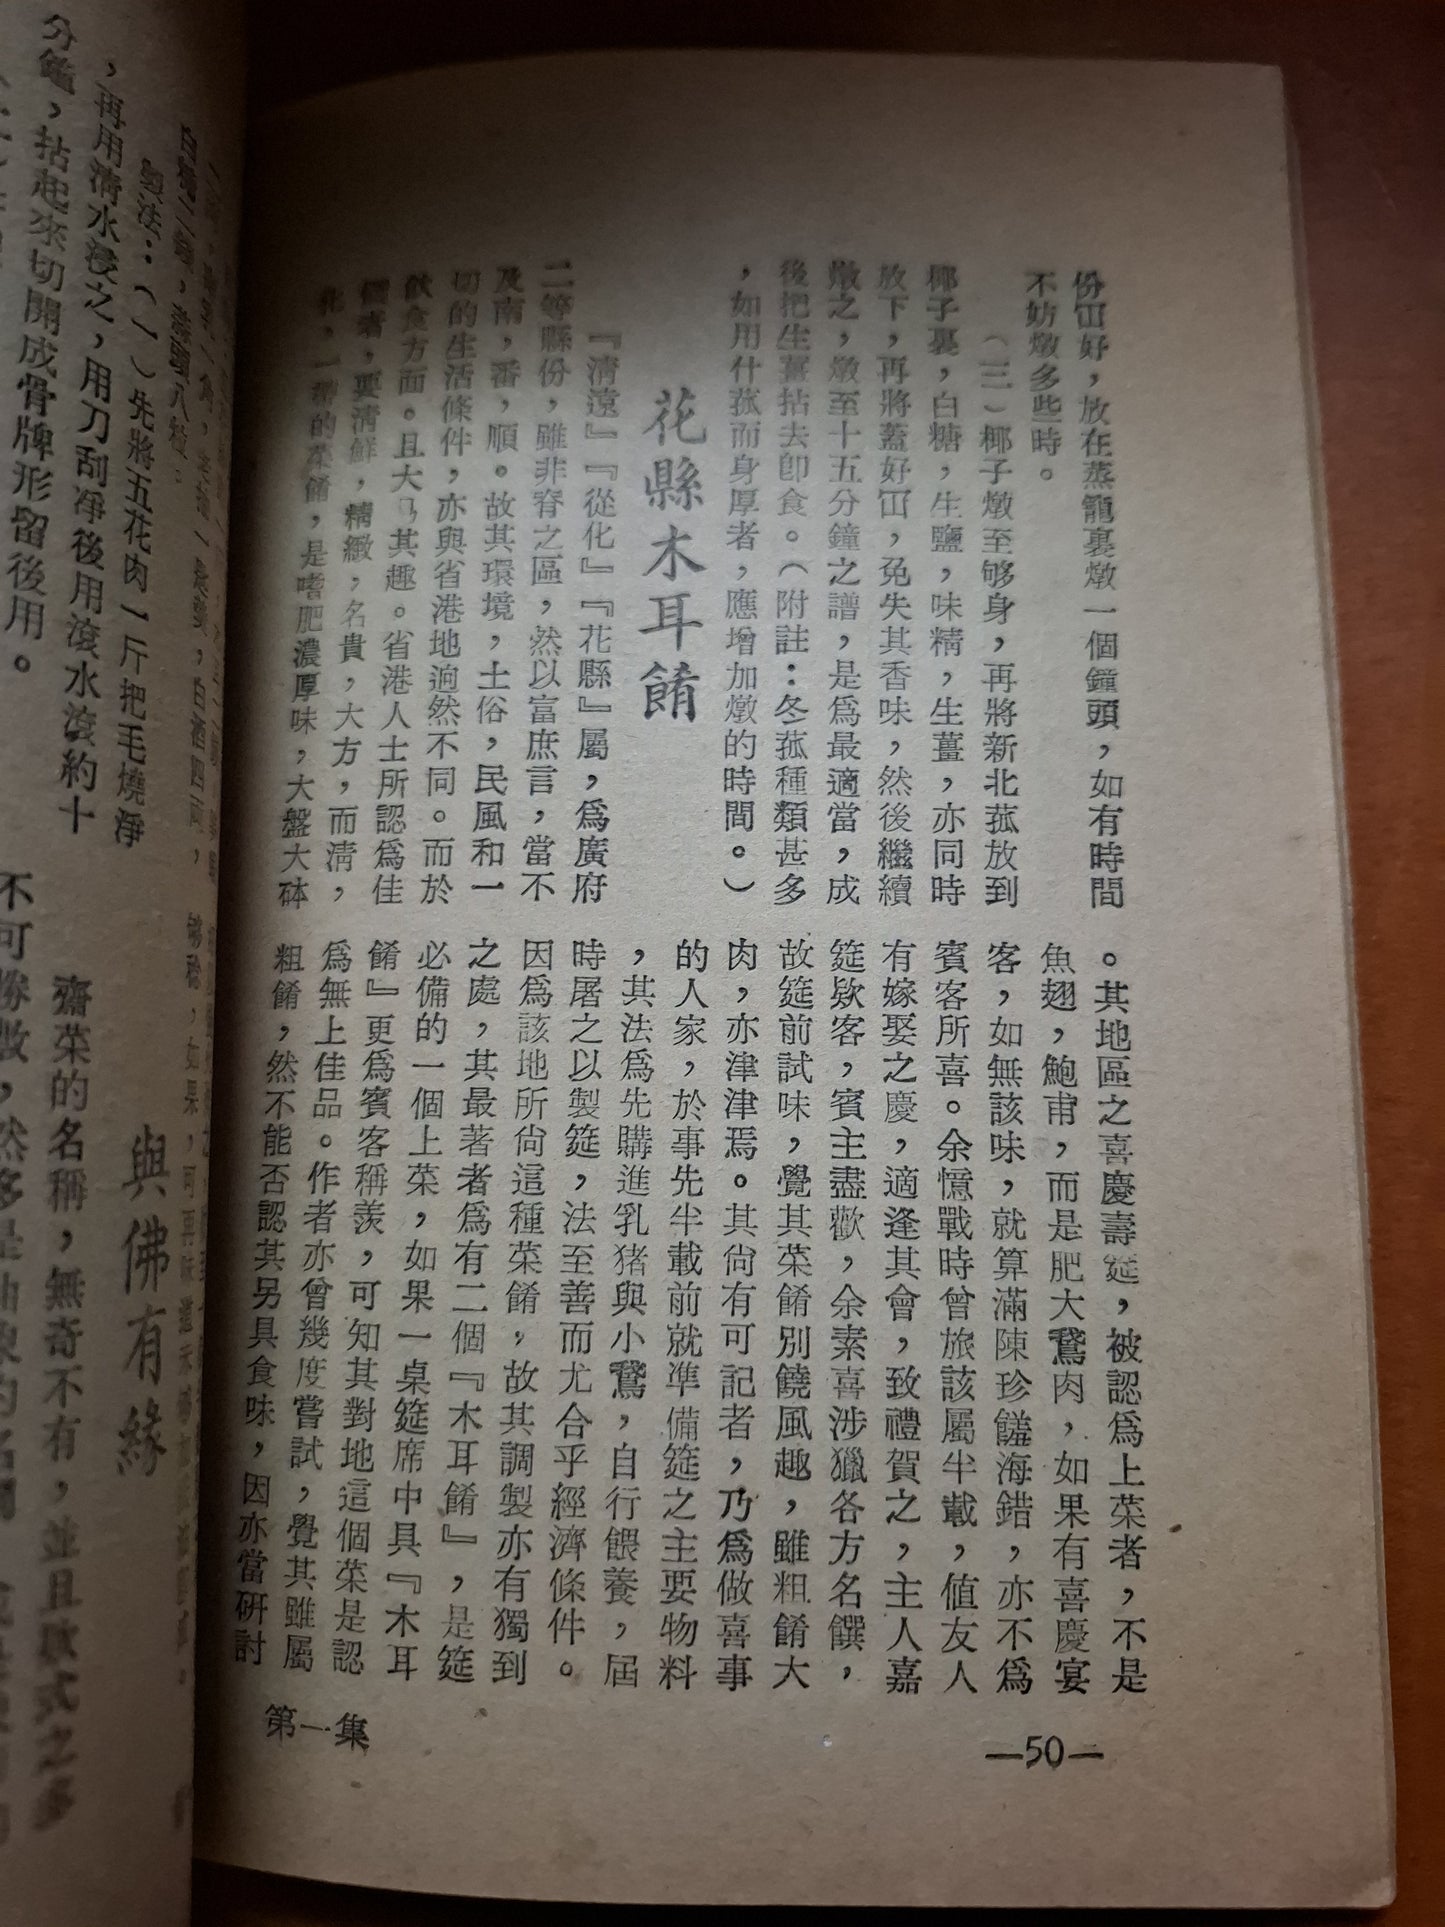 份冚好，放在蒸籠裏燉一個鐘頭，如有時間
不妨燉多些時。
（三）椰子燉至够身，再將新北菰放到
椰子裏，白糖，生鹽，味精，生薑，亦同時
放下，再將蓋好冚，免失其香味，然後繼續
燉之，燉至十五分鐘之譜，是爲最適當，成
後把生薑拈去卽食。（附註：冬菰種類甚多
，如用什菰而身厚者，應增加燉的時間。）
花縣木耳餚
『淸遠』『從化』『花縣』屬，爲廣府
二等縣份，雖非脊之區，然以富庶言，當不
及南，番，順。故其環境，土俗，民風和一
切的生活條件，亦與省港地逈然不同。而於
飲食方面。且大 其趣。省港人士所認爲佳
餚者，要淸鮮，精緻，名貴，大方，而淸，
一 的菜餚，是嗜肥濃厚味，大盤大砵
。其地區之喜慶壽筵，被認爲上菜者，不是
魚翅，鮑甫，而是肥大鵞肉，如果有喜慶宴
客，如無該味，就算滿陳珍饈海錯，亦不爲
賓客所喜。余憶戰時曾旅該屬半載，値友人
有嫁娶之慶，適逢其會，致禮賀之，主人嘉
筵欵客，賓主盡歡，余素喜涉獵各方名饌，
故筵前試味，覺其菜餚別饒風趣，雖粗餚大
肉，亦津津焉。其尙有可記者，乃爲做喜事
的人家，於事先半載前就準備筵之主要物料
，其法爲先購進乳猪與小鵞，自行餵養，屆
時屠之以製筵，法至善而尤合乎經濟條件。
因爲該地所尙這種菜餚，故其調製亦有獨到
之處，其最著者爲有二個『木耳餚』，是筵
必備的一個上菜，如果一桌筵席中具『木耳
餚』更爲賓客稱羨，可知其對地這個菜是認
爲無上佳品。作者亦曾幾度嘗試，覺其雖屬
粗餚，然不能否認其另具食味，因亦當硏討
第一集
—50—
製法：（一）先將五花肉一斤把毛燒淨
，再用淸水浸之，用刀刮淨後用滾水滾約十
分鐘，拈起來切開成骨牌形留後用。
與佛有緣
齋菜的名稱，無奇不有，並且欵式之多
不可勝數，然多是抽象的名詞